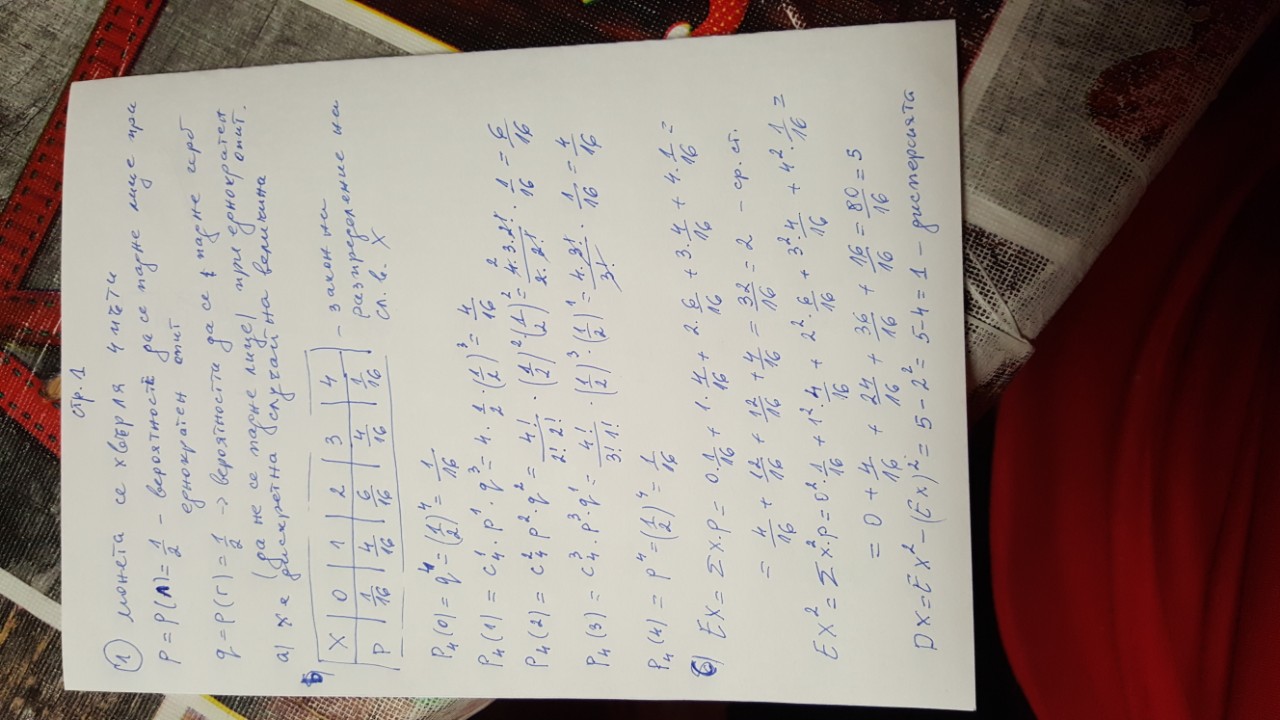 стр. 1
1 монета се хвърля 4 пъти
P = P(Л) = 1/2 – вероятност да се падне лице при
еднократен опит
q = P(Г) = 1/2 -> вероятността да се падне герб
(да не се падне лице) при еднократен опит.
а) X е дискретна случайна величина
б)
X | 0 | 1 | 2 | 3 | 4
P | 1/16 | 4/16 | 6/16 | 4/16 | 1/16
– закон на
разпределение на
сл. в. X
P₄(0) = q⁴ = (1/2)⁴ = 1/16
P₄(1) = C₄¹ · p¹ · q³ = 4 · 1/2 · (1/2)³ = 4/16
P₄(2) = C₄² p² · q² = 4!/(2! 2!) · (1/2)² · (1/2)² = 4·3·2!/(2·2!) · 1/16 = 6/16
P₄(3) = C₄³ · p³ · q¹ = 4!/(3! 1!) · (1/2)³ · (1/2)¹ = 4·3!/3! · 1/16 = 4/16
P₄(4) = p⁴ = (1/2)⁴ = 1/16
EX = Σx·p = 0·1/16 + 1·4/16 + 2·6/16 + 3·4/16 + 4·1/16 =
= 4/16 + 12/16 + 12/16 + 4/16 = 32/16 = 2 – ср. ст.
EX² = Σx²·p = 0²·1/16 + 1²·4/16 + 2²·6/16 + 3²·4/16 + 4²·1/16 =
= 0 + 4/16 + 24/16 + 36/16 + 16/16 = 80/16 = 5
DX = EX² – (EX)² = 5 – 2² = 5 – 4 = 1 – дисперсията